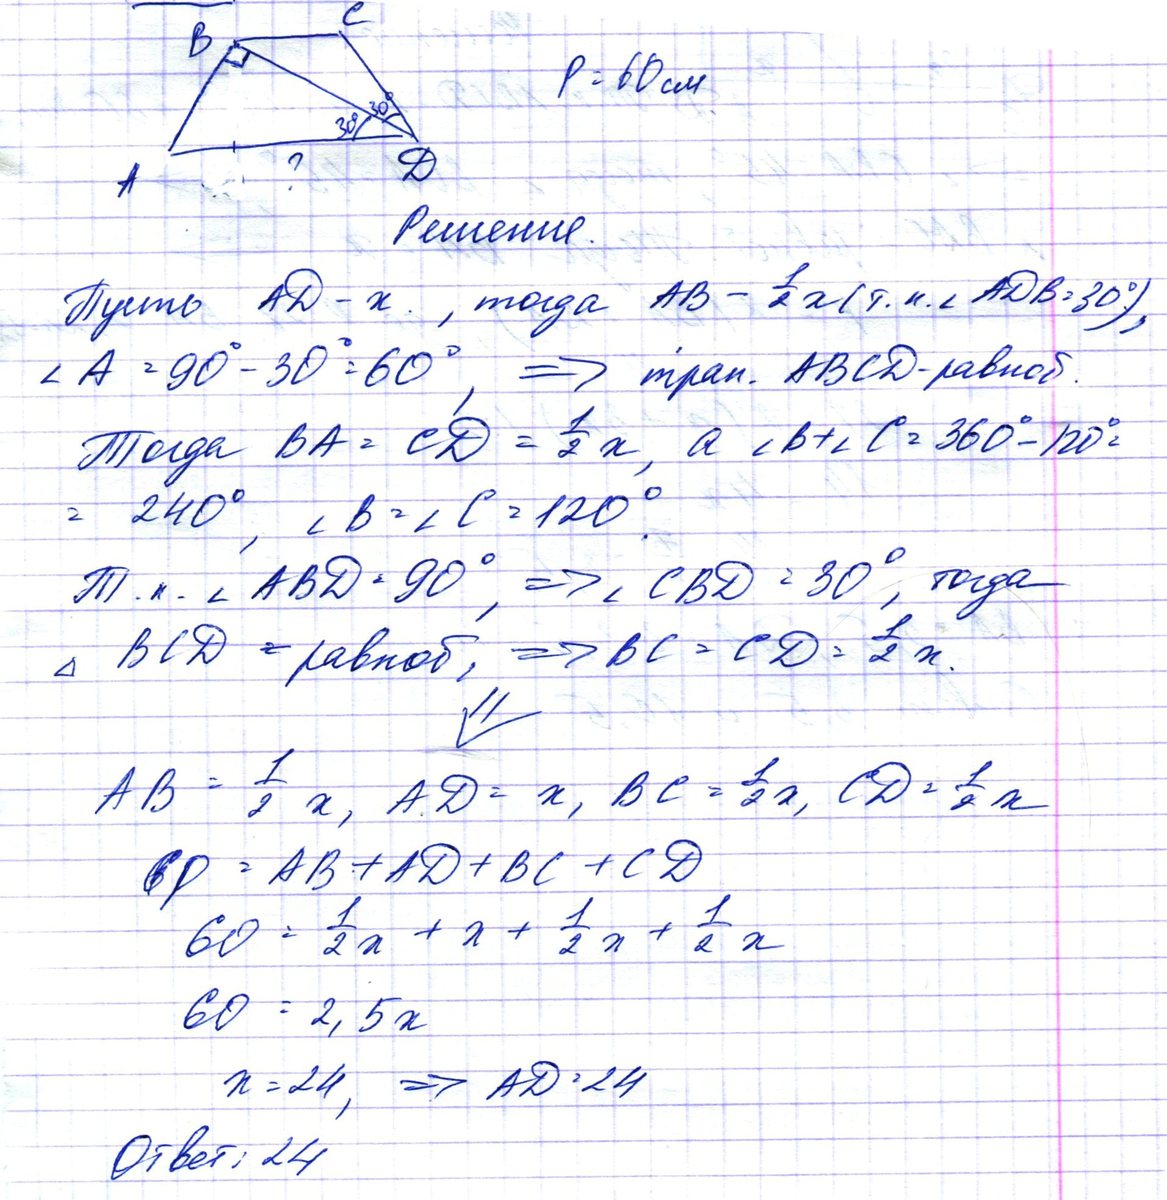 B C
P = 60 см
30° 30°
A ? D
Решение.
Пусть AD - x., тогда AB - 1/2 x (т.к. ∠ ADB = 30°),
∠ A = 90° - 30° = 60°, => трап. ABCD - равноб.
Тогда BA = CD = 1/2 x, а ∠B + ∠ C = 360° - 120° =
= 240°, ∠ B = ∠ C = 120°.
Т.к. ∠ ABD = 90°, => ∠ CBD = 30°, тогда
△ BCD - равноб, => BC = CD = 1/2 x.
AB = 1/2 x, AD = x, BC = 1/2 x, CD = 1/2 x
P = AB + AD + BC + CD
60 = 1/2 x + x + 1/2 x + 1/2 x
60 = 2,5x
x = 24, => AD = 24
Ответ: 24